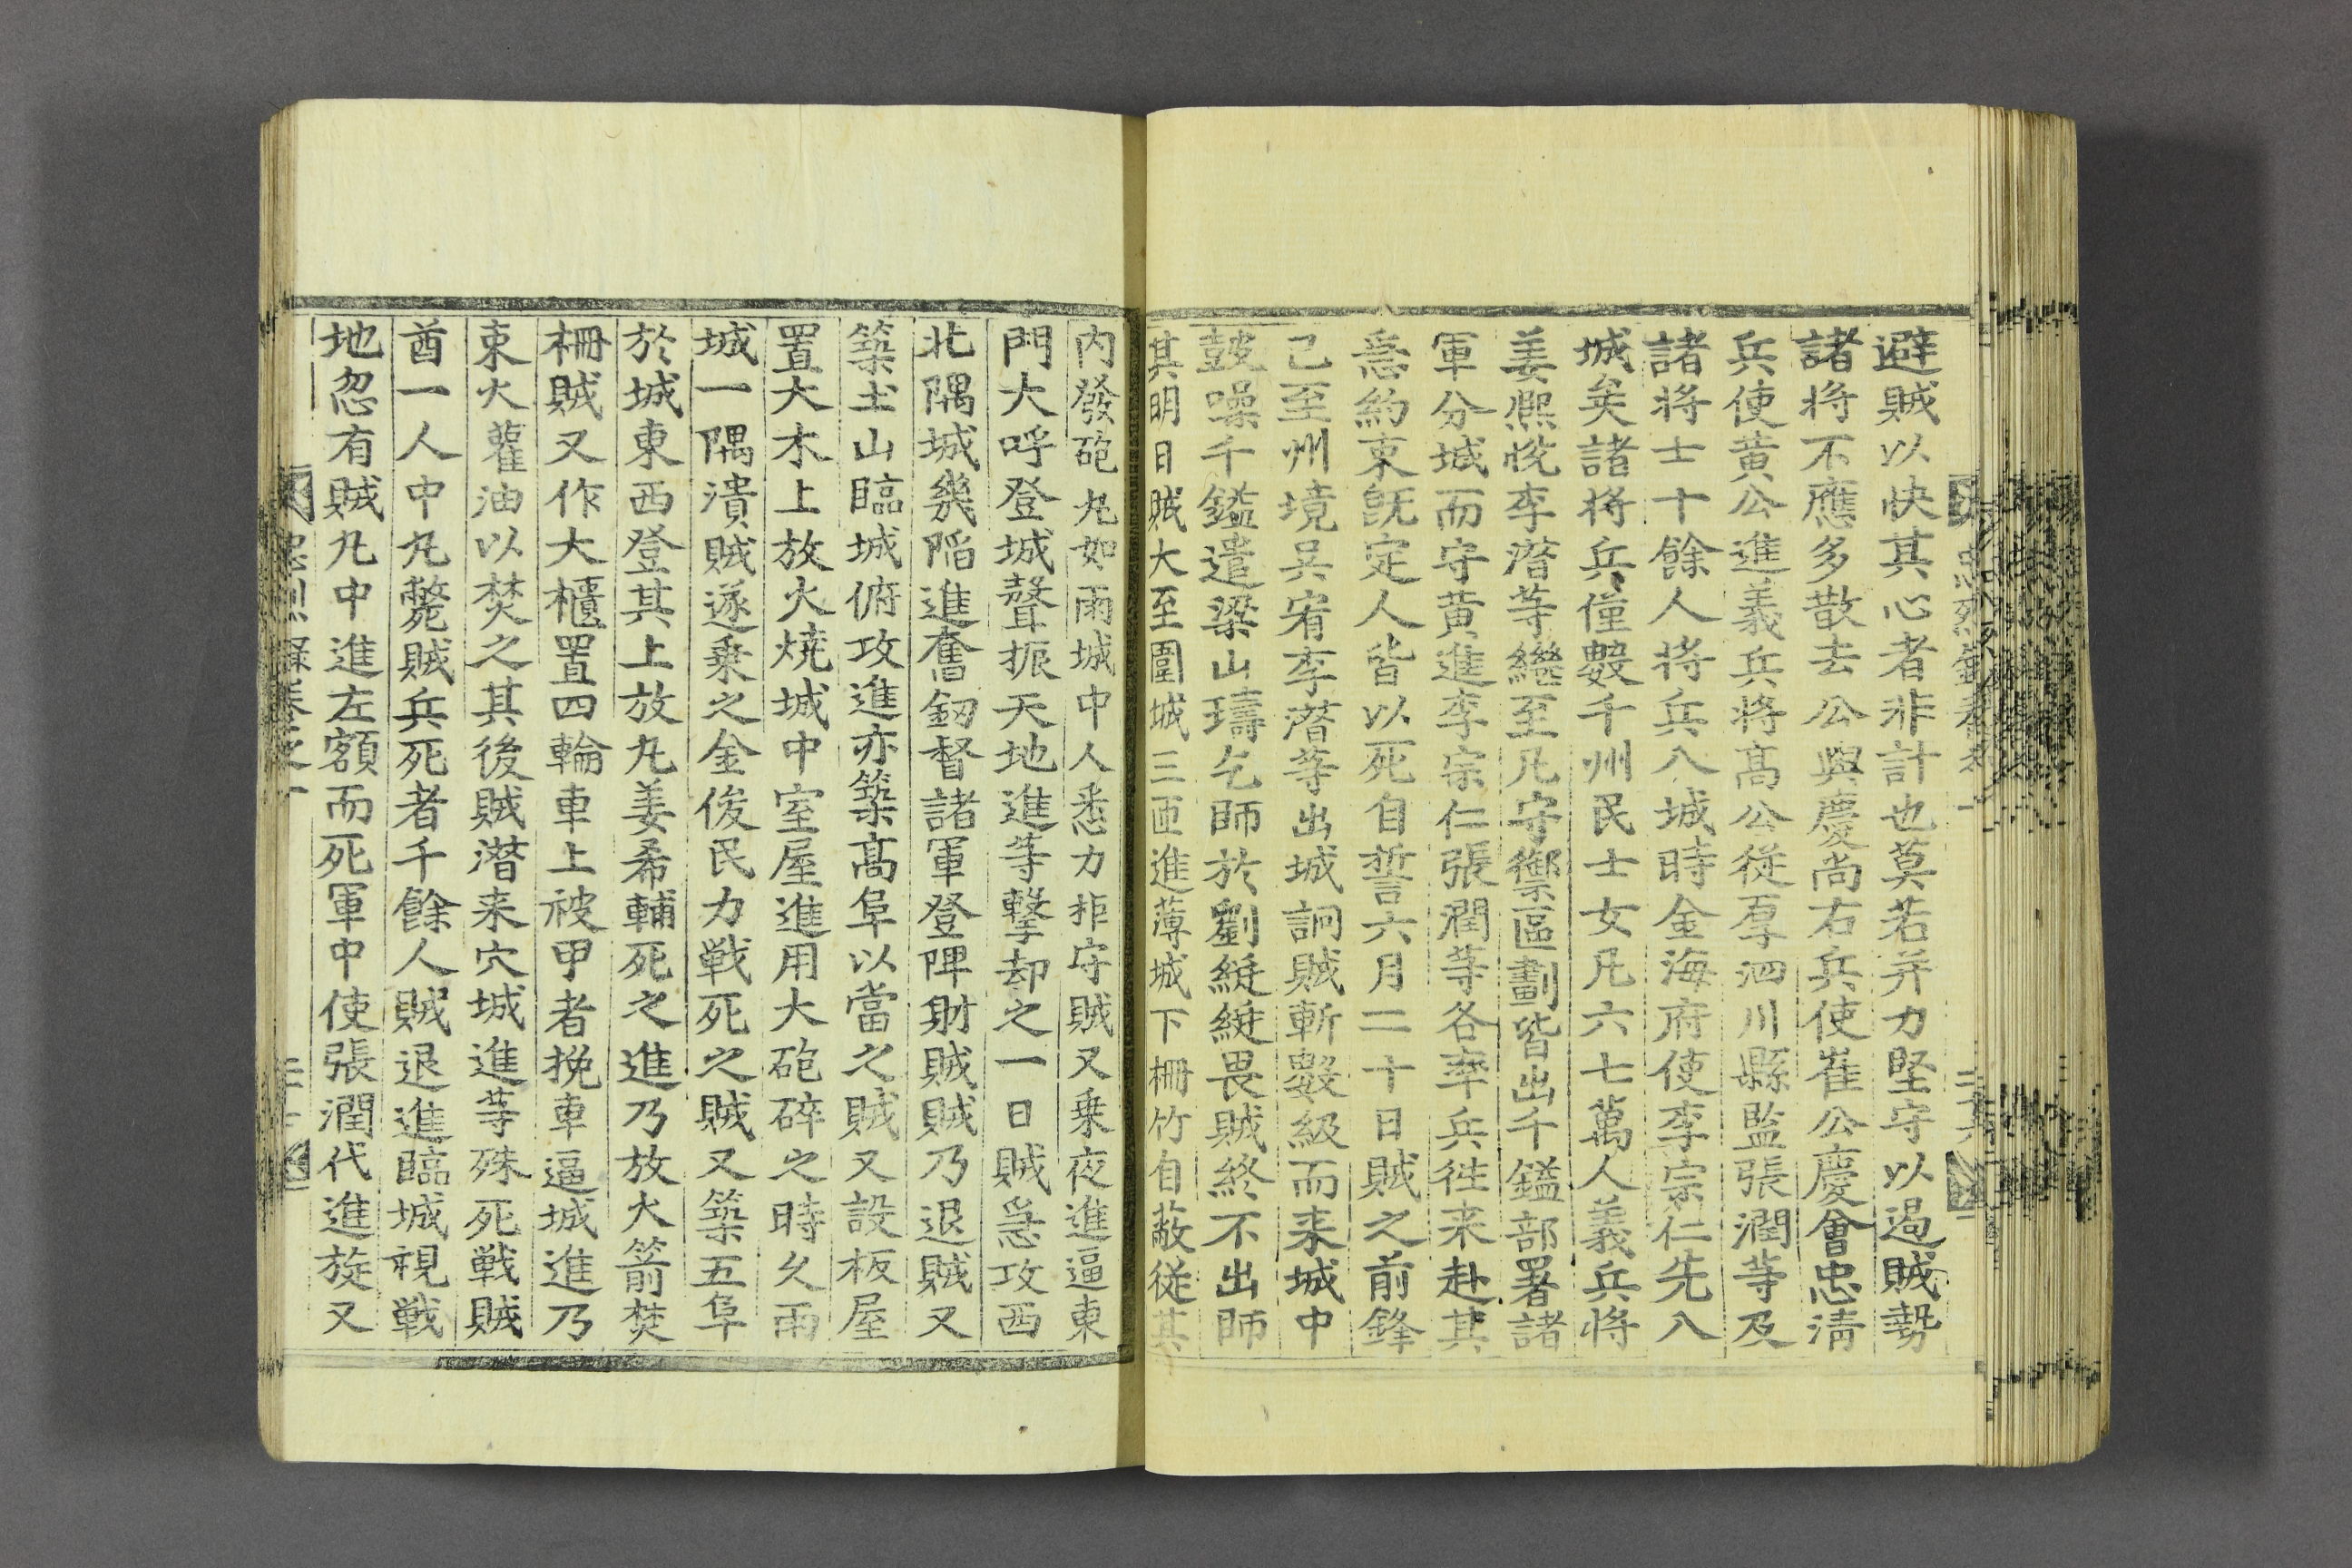 避賊以快其心者非計也莫若并力堅守以遏賊勢
諸將不應多散去公與慶尚右兵使崔公慶會忠淸
兵使黃公進義兵將高公從厚泗川縣監張潤等及
諸將士十餘人將兵入城時金海府使李宗仁先入
城矣諸將兵僅數千州民士女凡六七萬人義兵將
姜熙悅李潛等繼至凡守禦區劃皆出千鎰部署諸
軍分城而守黃進李宗仁張潤等各率兵徃来赴其
急約束旣定人皆以死自誓六月二十日賊之前鋒
已至州境吳宥李潛等出城詗賊斬數級而来城中
鼓噪千鎰遣梁山璹乞師於劉綎綎畏賊終不出師
其明日賊大至圍城三匝進薄城下柵竹自蔽從其
內發砲丸如雨城中人悉力拒守賊又乗夜進逼東
門大呼登城聲振天地進等擊却之一日賊急攻西
北隅城幾陷進奮釰督諸軍登陴射賊賊乃退賊又
築土山臨城俯攻進亦築高阜以當之賊又設板屋
置大木上放火燒城中室屋進用大砲碎之時久雨
城一隅潰賊遂乗之金俊民力戰死之賊又築五阜
於城東西登其上放丸姜希輔死之進乃放火箭焚
柵賊又作大櫃置四輪車上被甲者挽車逼城進乃
束火灌油以焚之其後賊潛来穴城進等殊死戰賊
酋一人中丸斃賊兵死者千餘人賊退進臨城視戰
地忽有賊丸中進左額而死軍中使張潤代進旋又